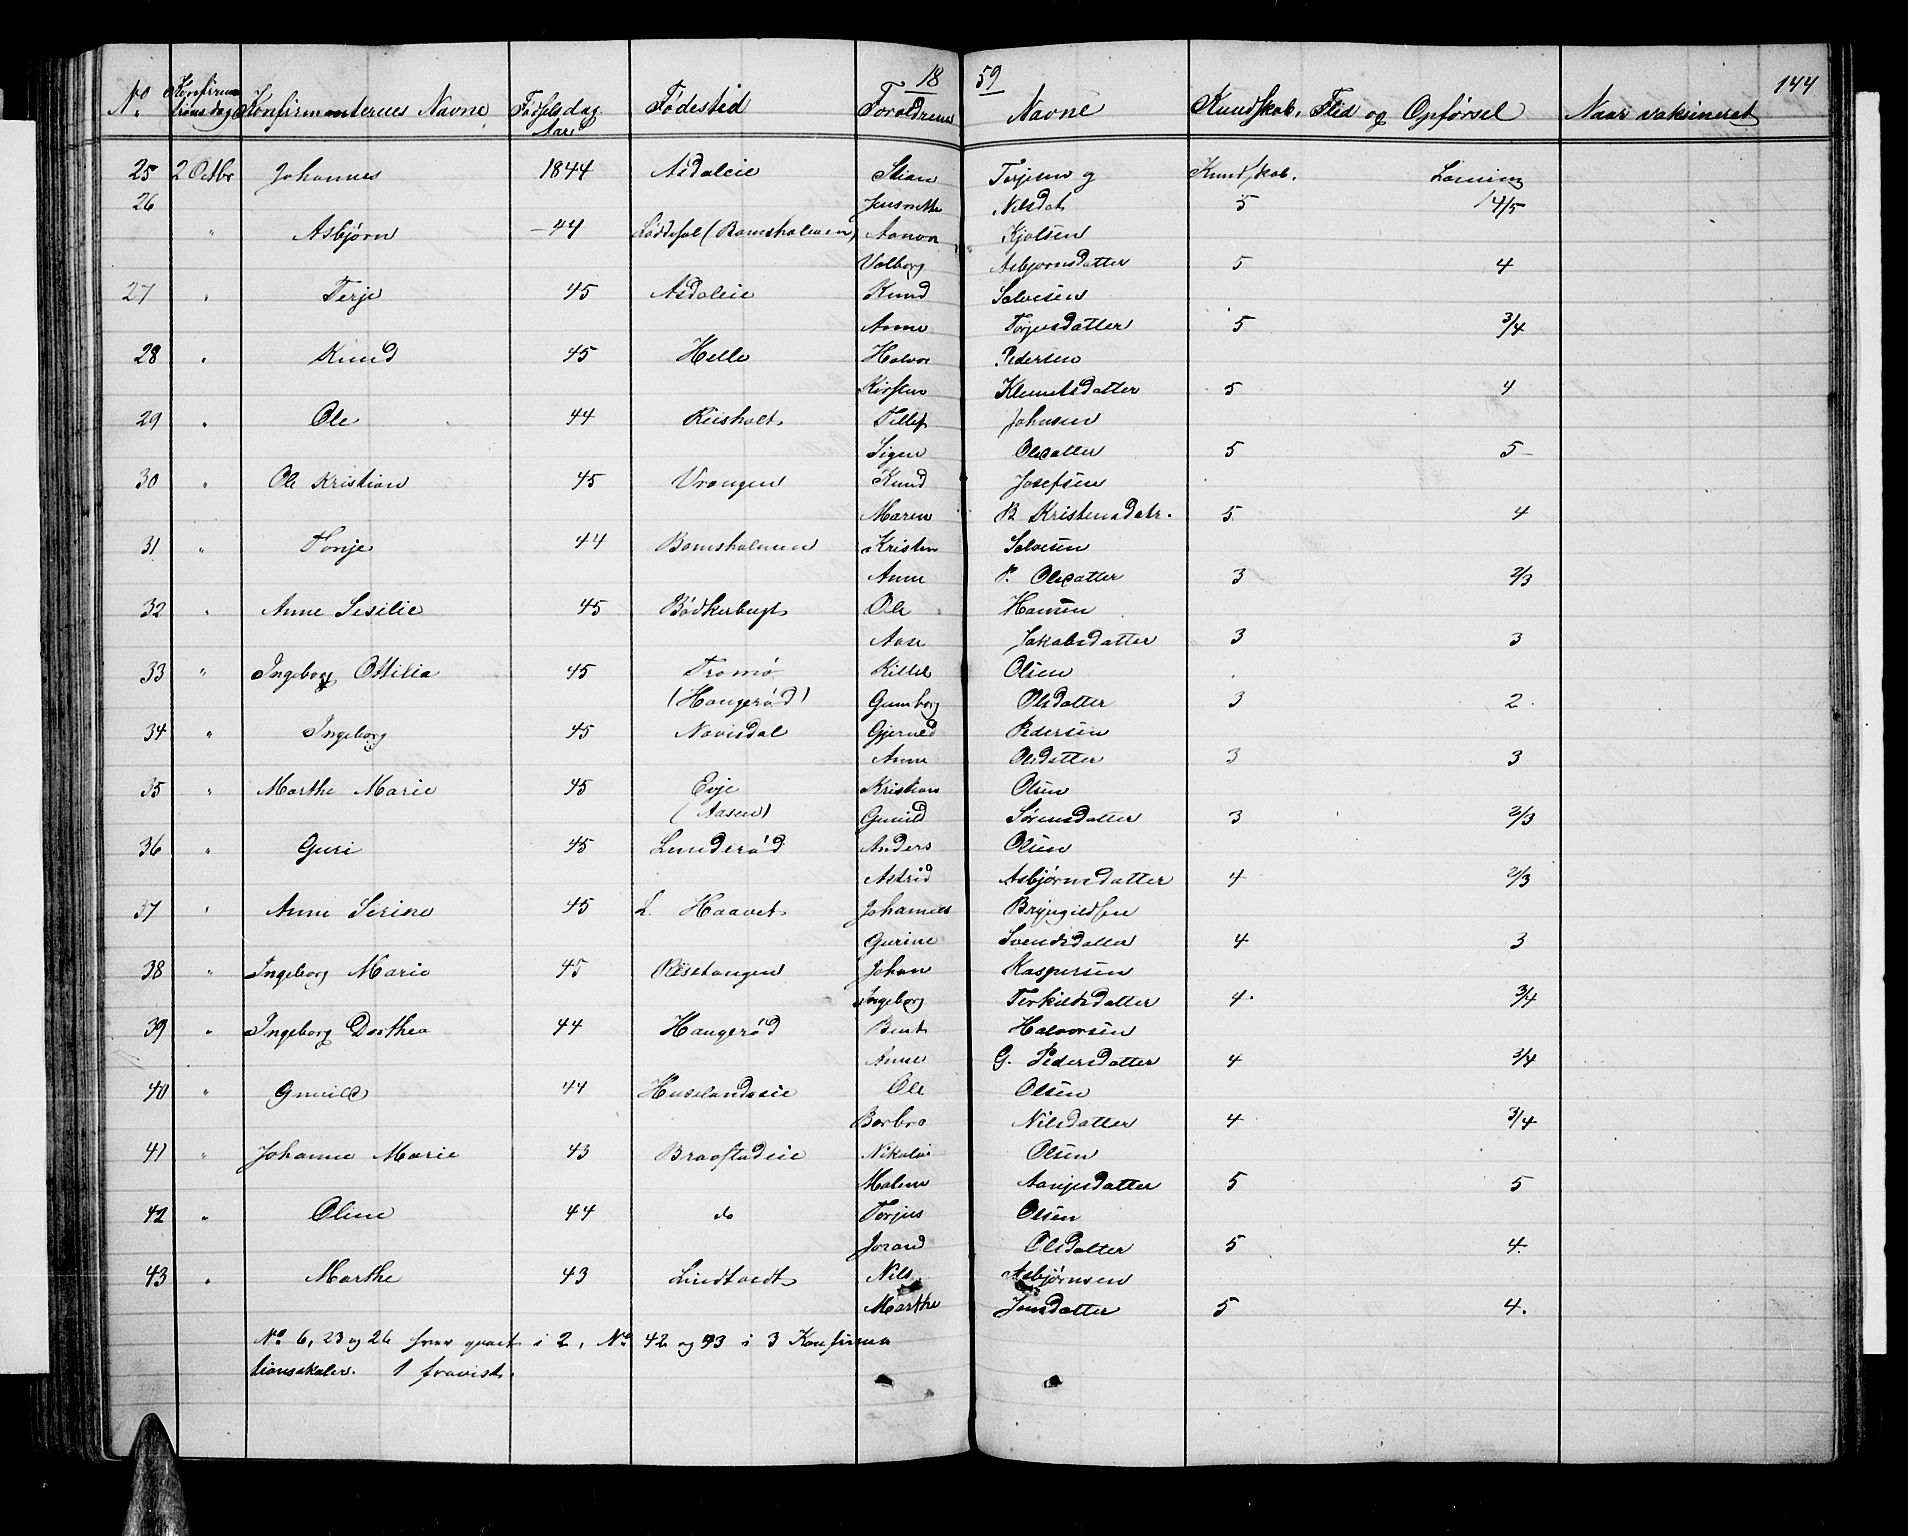 18 59
144
No. Konfirmationsdag Konfirmanternes Navne Fødselsdag Aar Fødested Forældrenes Navne Kundskab, Flid og Opførsel Naar vaksineret
25 2 Octbr Johannes 1844 Asdaleie Stian Terjesen og Kundskab. Læsning
26 Nilsdat 5 4/5
" Asbjørn - 44 (Bomsholmen) Aanon Kjølsen
Valborg Asbjørnsdatter 5 4
27 " Terje 45 Asdaleie Knud Salvesen
Anne Torjusdatter 5 3/4
28 " Knud 45 Helle Halvor Pedersen
Kirsten Klemetsdatter 5 4
29 " Ole 44 Riisholt Tellef Johnsen
Sigen Olsdatter 5 5
30 " Ole Kristian 45 Vrangen Knud Josefsen
Maren B. Kristensdatr. 5 4
31 " Tonje 44 Bomsholmen Kristen Salvesen
Anne P. Olsdatter 3 2/3
32 " Anne Sesilie 45 Bødkerbugt Ole Hansen
Aase Jakobsdatter 3 3
33 " Ingeborg Ottilia 45 Tromø Kittel Olsen
(Haugerød) Gunborg Olsdatter 3 2.
34 " Ingeborg 45 Navisdal Gjeruld Pedersen
Anne Olsdatter 3 3
35 " Marthe Marie 45 Evje Kristian Olsen
(Aasen) Gunild Sørensdatter 3 2/3
36 " Guri 45 Lunderød Anders Olsen
Astrid Asbjørnsdatter 4 2/3
37 " Anne Serine 45 L. Haavet Johannes Bryngildsen
Gurine Svendsdatter 4 3
38 " Ingeborg Marie 45 Johan Kaspersen
Ingeborg Terkildsdatter 4. 3/4
39 " Ingeborg Dorthea 44 Haugerød Bent Halvorsen
Anne G. Pedersdatter 4 3/4
40 " Gunild 44 Huslandseie Ole Olsen
Barbro Nilsdatter 4 3/4
41 " Johanne Marie 43 Braastadeie Nikolai Olsen
Malene Aanjesdatter 5 5
42 " Oline 44 do Torjus Olsen
Joran Olsdatter 5 4.
43 " Marthe 43 Lindtvedt Nils Asbjørnsen
Marthe Jensdatter 5 4.
No 6, 23 og 26 have gaaet i 2, No 42 og 43 i 3 Konfirma
tionsskoler. 1 fravist.